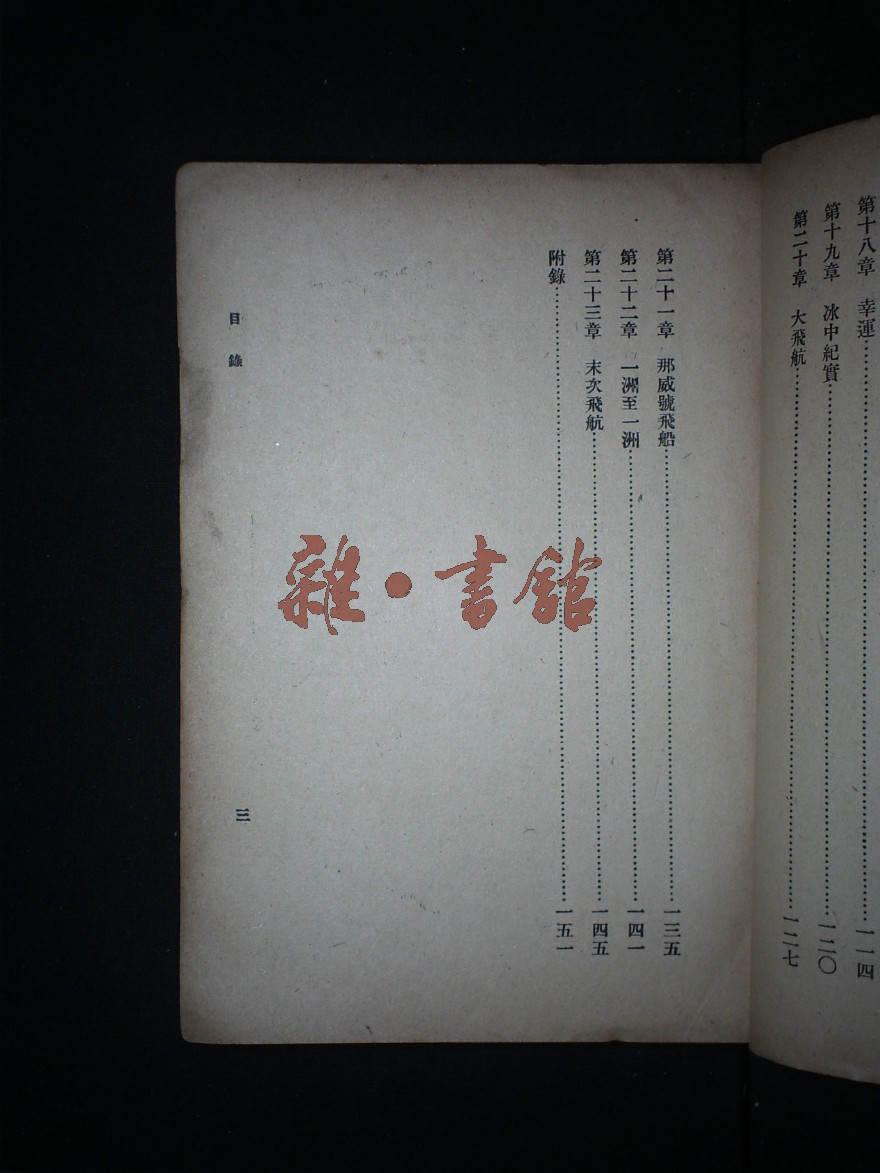 第十八章　幸運……一一四
第十九章　冰中紀實……一二〇
第二十章　大飛航……一二七
第二十一章　那威號飛船……一三五
第二十二章　一洲至一洲……一四一
第二十三章　末次飛航……一四五
附錄……一五一
目錄
三
雜·書館